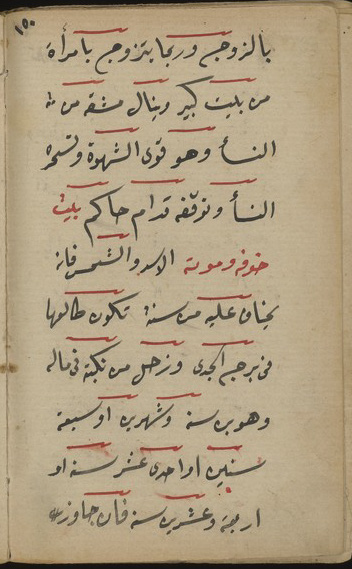 ١٥٠
بالزوجه وربما يتزوج بامرأة
من بليت كبير وينال مشقه من
النسأ وهو قوى الشهوة وتسحره
النسأ وتوقفه قدام حاكم بليت
خوفه وموته الاسد والشمس فانه
يخاف عليه من سنة تكون طالعها
فى برج الجدى وزحل من نكبة فى ماله
وهو بن سنه وشهرين او سبعة
سنين او احدى عشر سنه او
اربعة وعشرين سنه فان جاوز